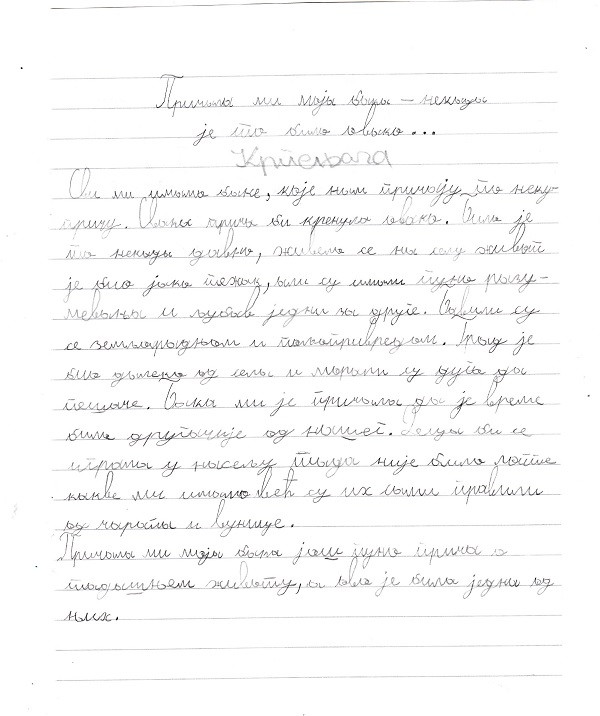 Причала ми моја бака – некада
је то било овако...
Крпењача
Сви ми имамо баке, које нам причају по неку
причу. Свака прича би кренула овако. Било је
то некада давно, живело се на селу живот
је био јако тежак, али су имали пуно разу-
мевања и љубав једни за друге. Бавили су
се земљорадњом и пољопривредом. Град је
био далеко од села и морали су дуго да
пешаче. Бака ми је причала да је време
било другачије од нашег. Деца би се
играла у насељу тада није било лопте
какве ми имамо већ су их сами правили
од чарапа и вунице.
Причала ми моја бака још пуно прича о
тадашњем животу, а ово је била једна од
њих.